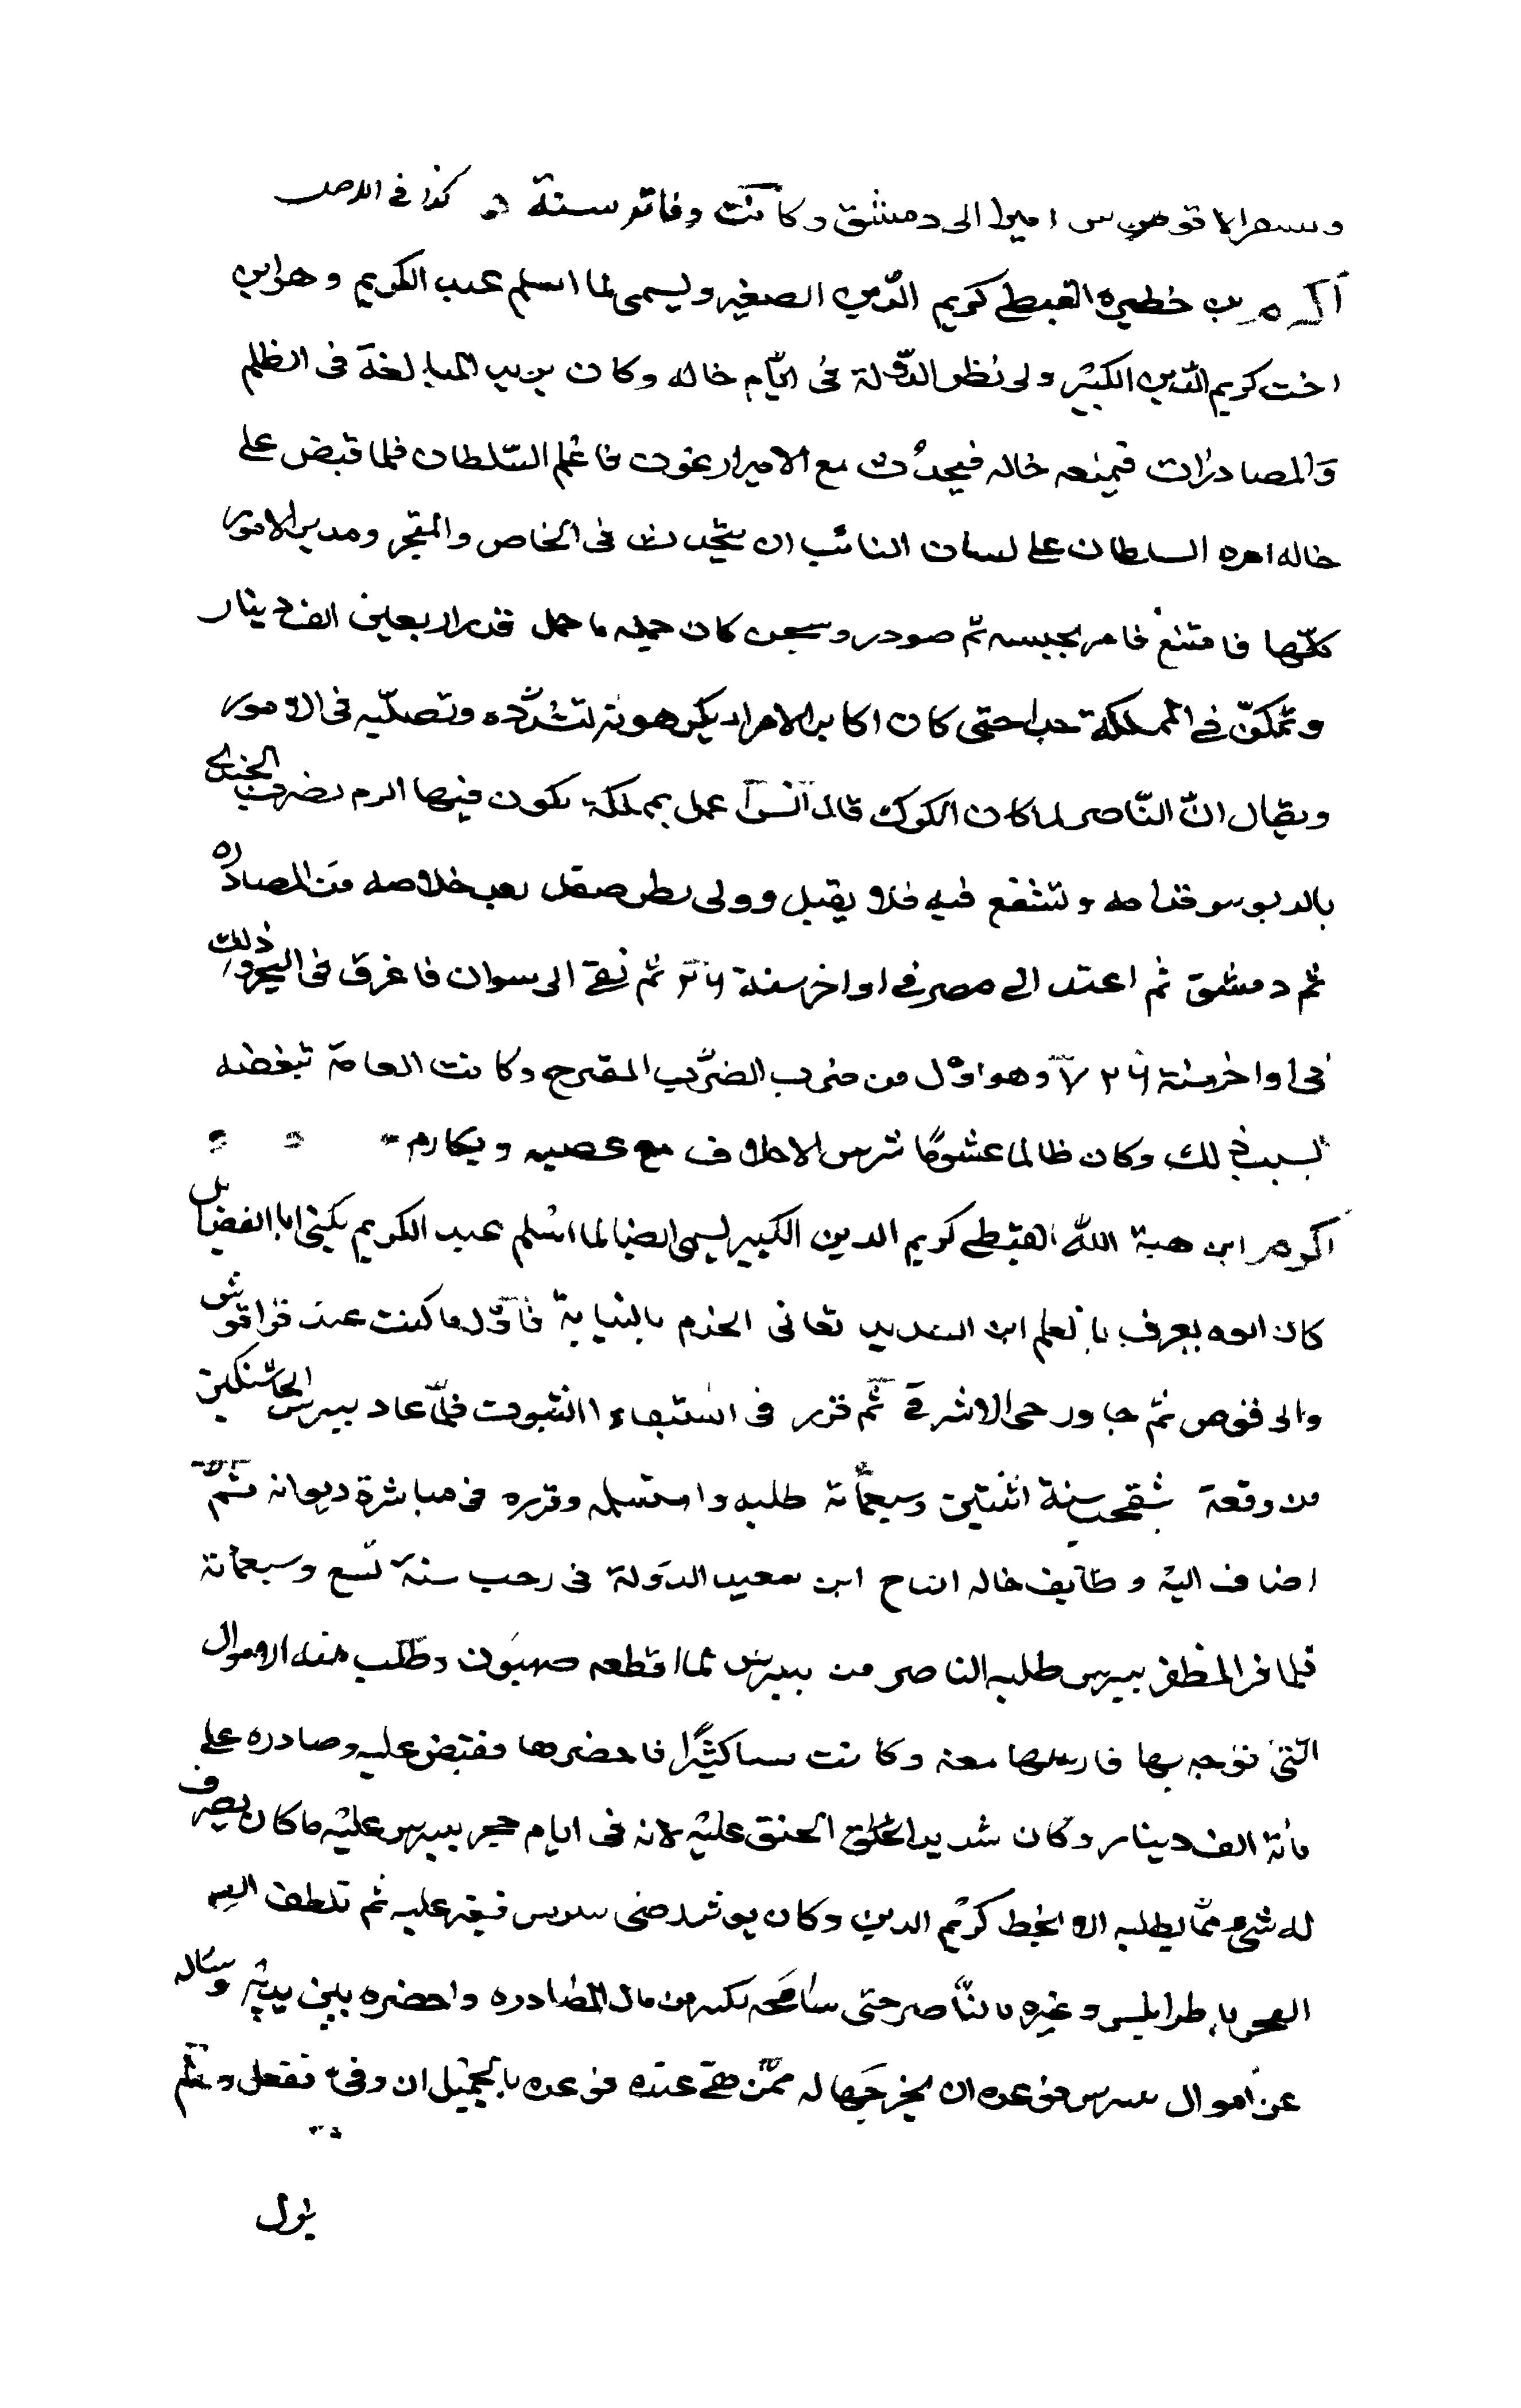 الى دمشق وكانت وفاته سنة كذا في الاصل
اكرم بن خطيره القبطي كريم الدّين الصغير ويسمى لما اسلم عبد الكريم وهو ابن
اخت كريم الدّين الكبير ولى نظر الدّولة في ايّام خاله وكان يريد المبالغة فى الظلم
وَالمصادرات فيمنعه خاله فيحدّث مع الامير ارغون فاعلم السّلطان فلما قبض على
خاله امره السلطان على لسان النائب ان يتحدث فى الخاص والمتجر ومدبر الامور
كلّها فامتنع فامر بحبسه ثم صودر وسجن كان جمله ما حمل قدر اربعين الف دينار
وتمكنّ في المملكة حتى كان اكابر الامراء يكرهونه لتشدّده وتصلّبه فى الامور
ويقال انّ النّاصر لما كان الكرك قال عمل بمملكة يكون فيها اكرم يضرب الجندى
بالدبوس قدامه وتشفع فيه فلا يقبل وولى صفد بعد خلاصه من المصادره
ثم دمشق ثم اعتد الى مصر في اواخر سنة ٢٦ ثم نفى الى سوان فاغرق فى البحر وذلك
فى اواخر سنة ٧٢٦ وهو اوّل من ضرب الضّرب المقترح وكانت العامّة تبغضه
بسبب ذلك وكان ظالما غشومًا شرس الاخلاق مع عصبيه ويكارم
اكرم ابن هبة اللّه القبطي كريم الدين الكبير ليسمى ايضا لما اسلم عبد الكريم يكنى ابا الفضايل
كان ابوه يعرف بابن السديد تعانى الخدم بالنيابة فاوّل ما كتبت عند قراقوش
والى قوص ثمّ ثمّ قرر فى استيفاء فلمّا عاد بيبرس الجاشنكير
من وقعة شقحب سنة اثنتين وسبعمأة طلبه واستسلمه وقرره فى مباشرة ديوانه ثمّ
اضاف اليه وظايف خاله التاج ابن سعيد الدّولة فى رجب سنة تسع وسبعمأة
فلما فر المظفر بيبرس طلبه الناصر من بيبرس لما اقطعه صهيون وطلب منه الاموال
الّتى توجه بها فارسلها معه وكانت كثيرًا فاحضرها فقبض عليه وصادره على
مأة الف دينار وكان شديد الحنق عليه لانه فى ايام حجر بيبرس عليه ما كان يصرف
له شئ ممّا يطلبه الا بخط كريم الدين وكان يؤثر رضى بيبرس عليه ثم تلطف
الفخر بابن طرابلس وغيره بالنّاصر حتى سامحه بكثير من مال المصادره واحضره بين يديه وساله
عن اموال بيبرس فوعده ان يخرجها له ممّن هى عنده فوعده بالجميل ان وفى ففعل ولم
يزل